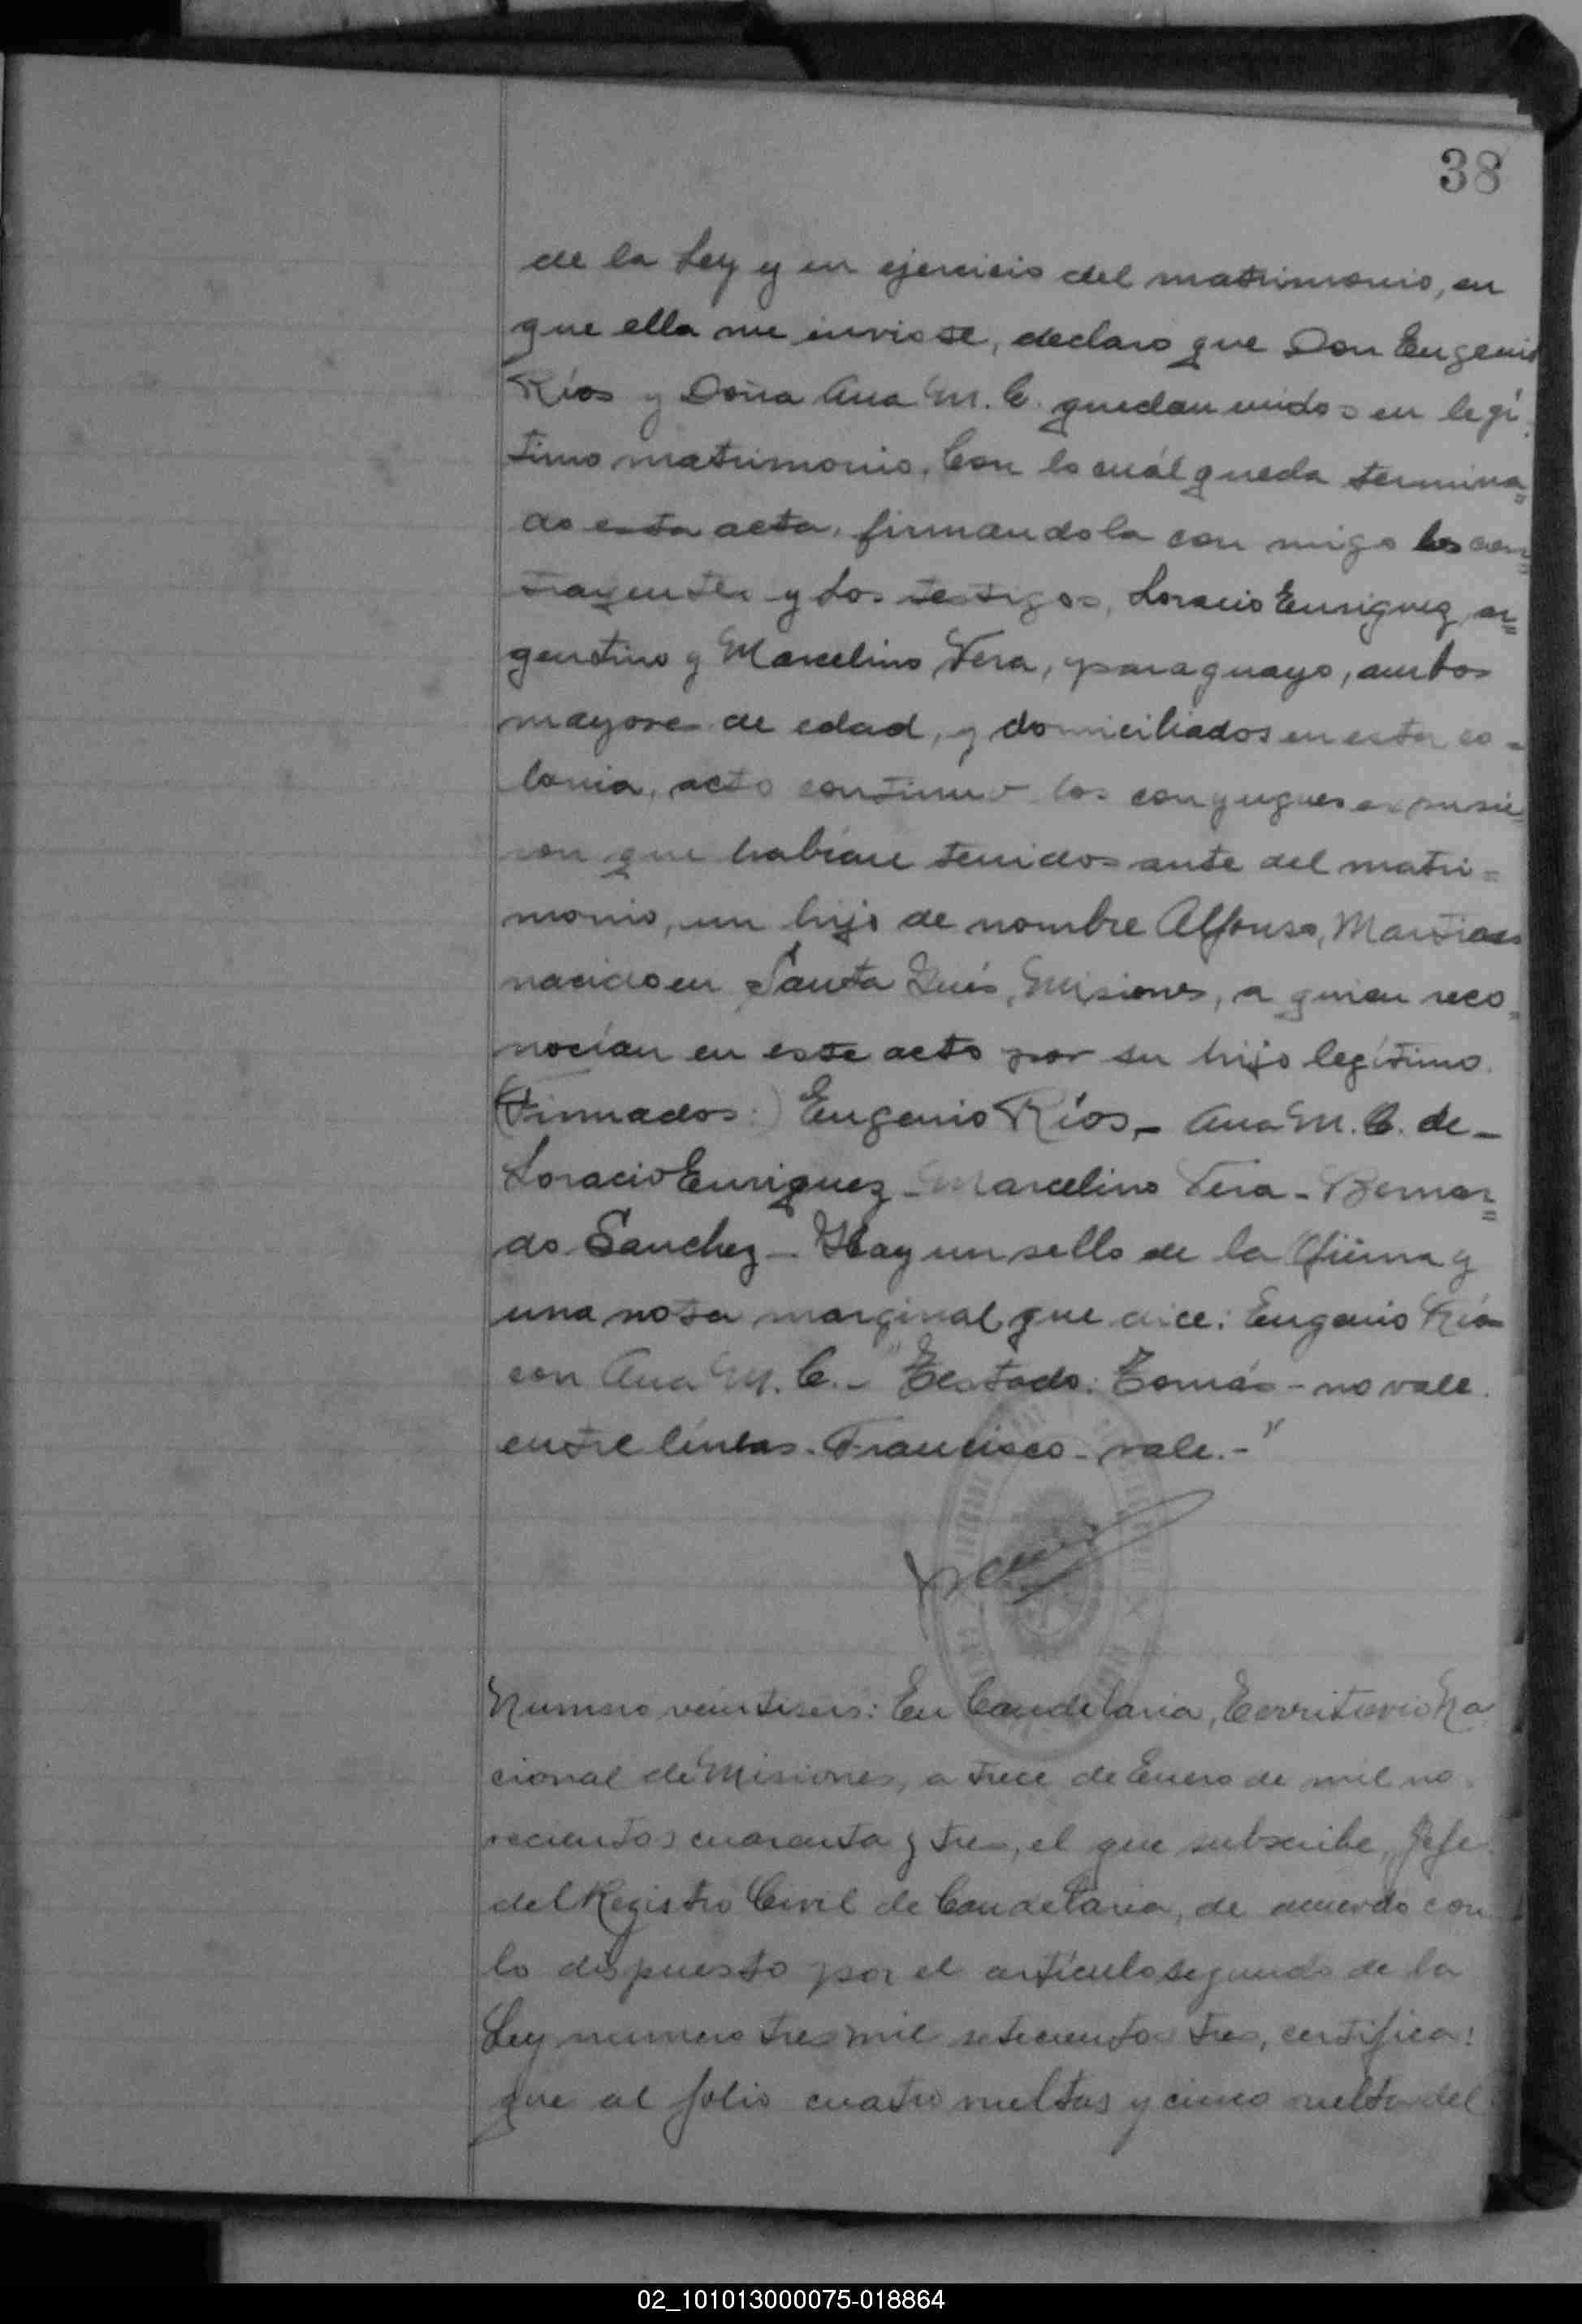 38
de la Ley y en ejercicio del matrimonio, en
que ella me inviste, declaro que Don Eugenio
Ríos y Doña Ana M. C. quedan unidos en legí
timo matrimonio. Con lo cuál queda termina=
do esta acta, firmandola con migo los con=
trayentes y los testigos, Horacio Enriquez, ar=
gentino y Marcelino Vera, paraguayo, ambos
mayores de edad, y domiciliados en esta co-
lonia, acto continuo los conyugues expusie
ron que habían tenidos ante del matri=
monio, un hijo de nombre Alfonso,
nacido en Santa Inés, Misiones, a quien reco=
nocían en este acto por su hijo legítimo.
(Firmados:) Eugenio Ríos - Ana M. C. de -
Horacio Enriquez - Marcelino Vera - Bernar=
do Sanchez - Hay un sello de la Oficina y
una nota marginal que dice: Eugenio Ríos
con Ana M. C. -" Testado: Tomás - no vale.
entre líneas. Francisco - vale. -"
Numero veintiseis: En Candelaria, Territorio Na
cional de Misiones, a trece de Enero de mil no
vecientos cuarenta y tres, el que subscribe, Jefe
del Registro Civil de Candelaria, de acuerdo con
lo dispuesto por el artículo segundo de la
Ley numero tres mil setecientos tres, certifica:
que al folio cuatro vueltas y cinco vuelta del
02_101013000075-018864